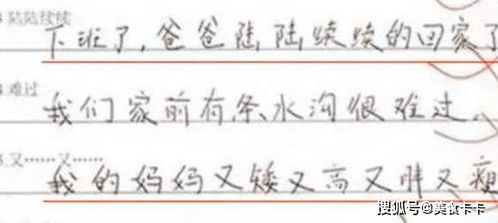 陆陆续续
下班了，爸爸陆陆续续的回家了
难过
我们家前有条水沟很难过。
又……又……
我的妈妈又矮又高又胖又瘦
搜狐号@美食卡卡